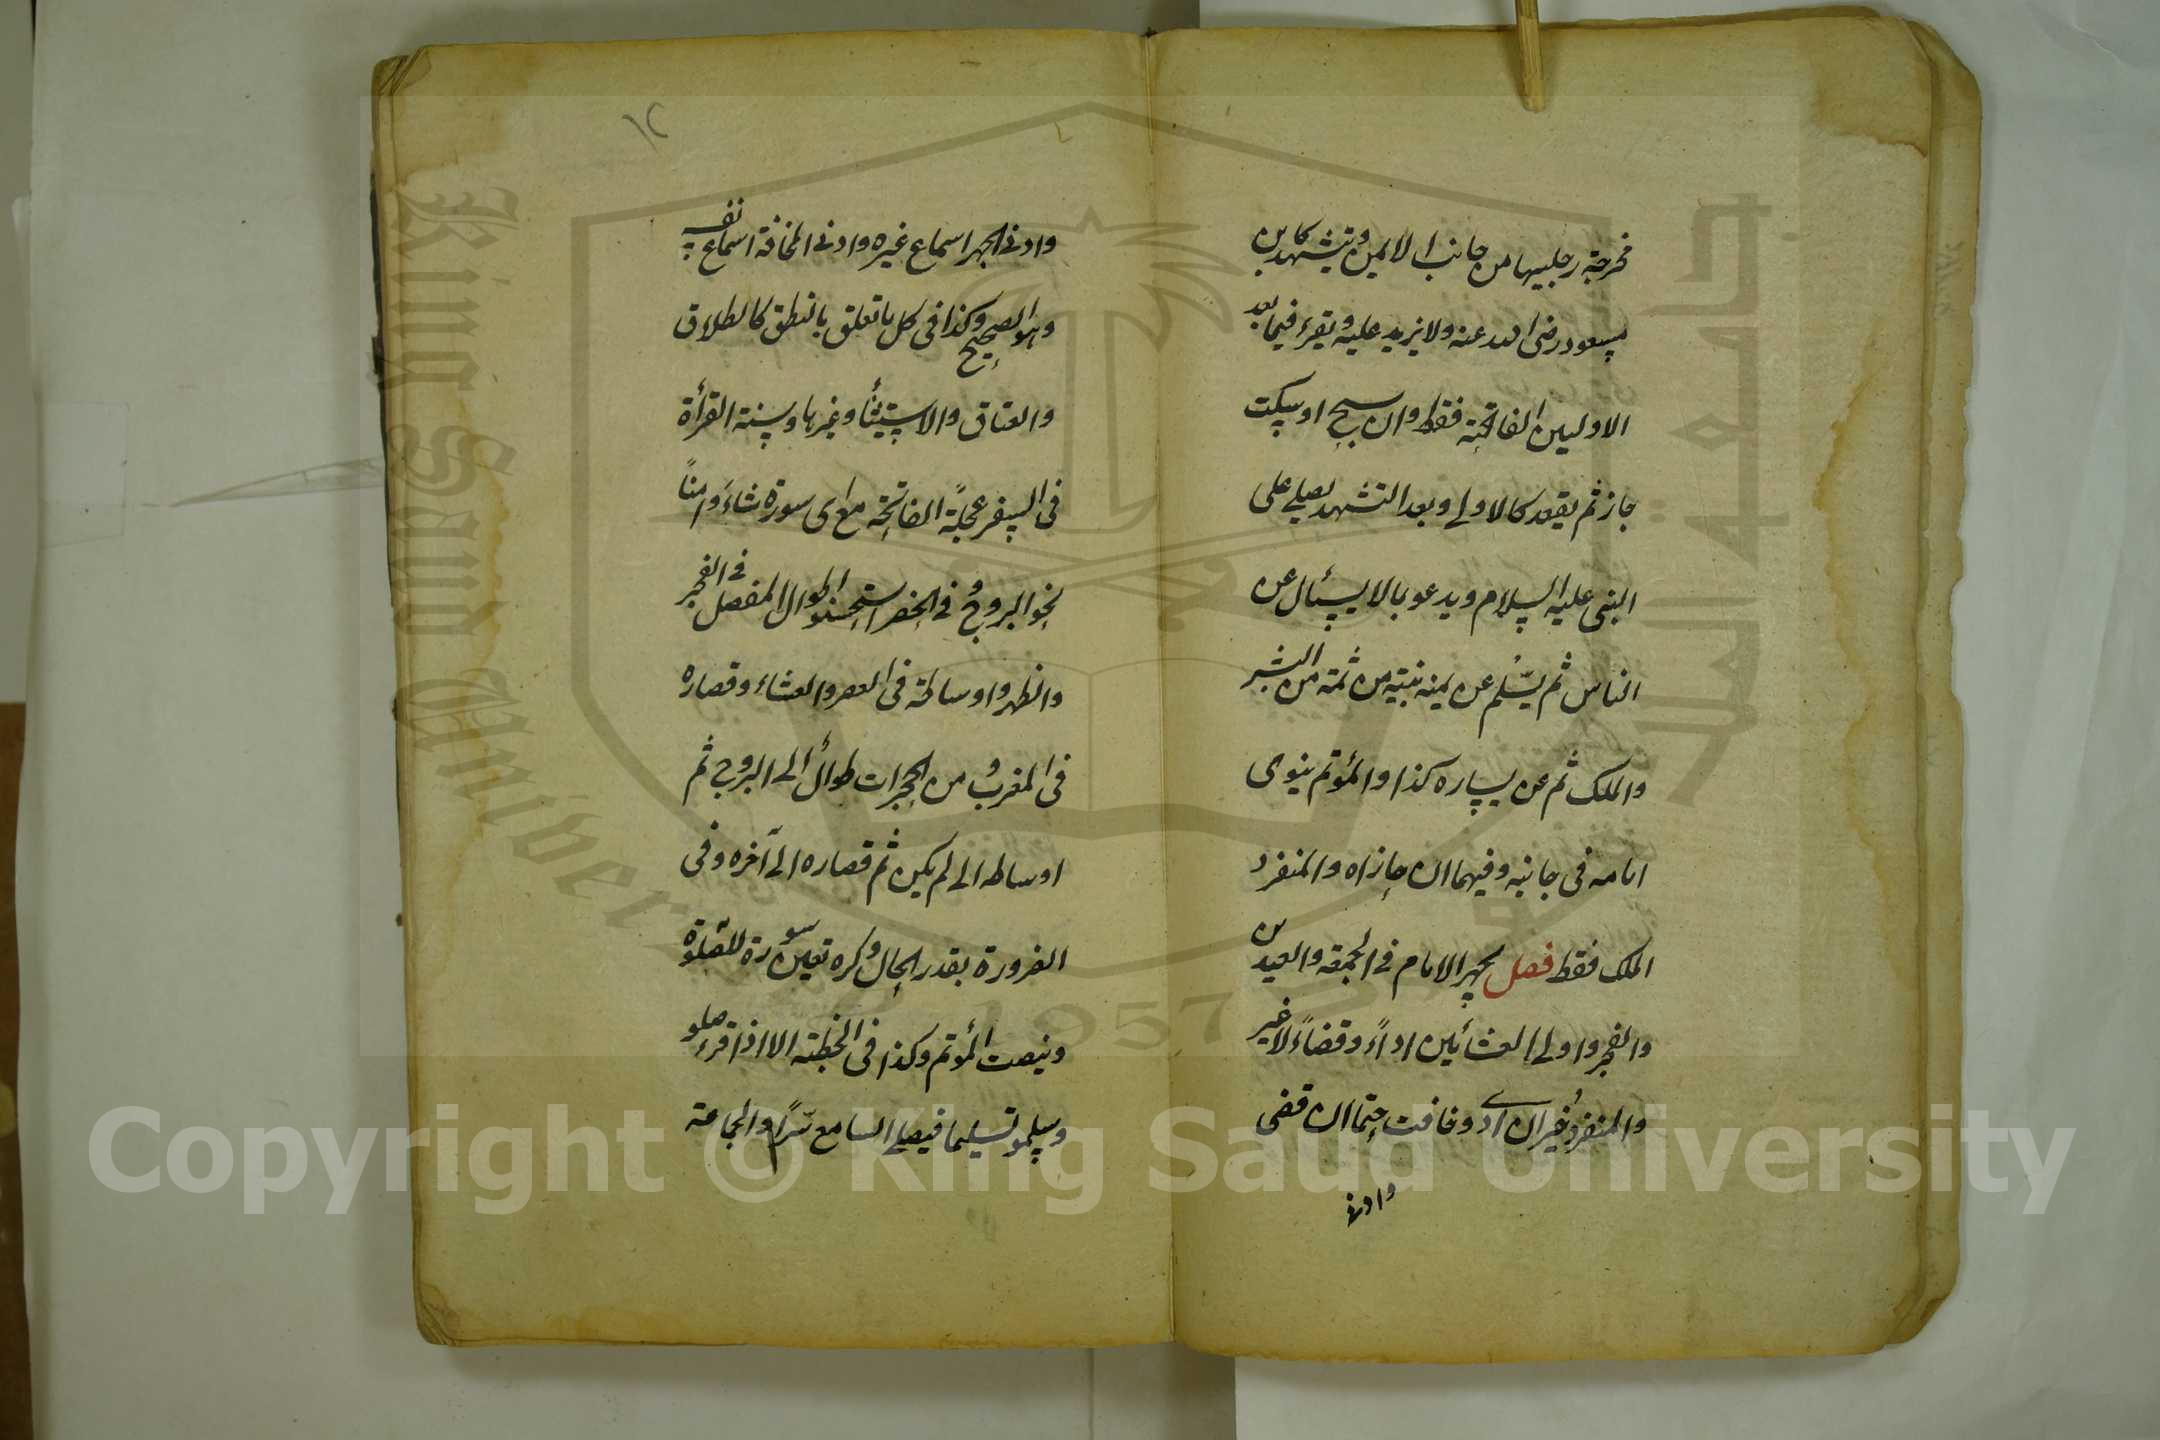 مخرجة رجليها من جانب الايمن ويتشهد كابن
مسعود رضى الله عنه ولا يزيد عليه ويقرء فيما بعد
الاوليين الفاتحة فقط وان سبح اوسكت
جاز ثم يقعد كالاولى وبعد التشهد يصلى على
النبى عليه السلام ويدعو بما لا يسئال عن
الناس ثم يسلم عن يمينه بنيته من ثمة من البشر
والملك ثم عن يساره كذا والمؤتم ينوى
امامه فى جانبه وفيهما ان حازاه والمنفرد
الملك فقط فصل يجهر الامام فى الجمعة والعيدين
والفجر واولى العشائين اداءً وقضاءً لا غير
والمنفرد خير ان ادى وخافت حتما ان قضى
وادنى
١٢
وادنى الجهر اسماع غيره وادنى المخافة اسماع نفسه
وهو الصحيح وكذا فى كل ما تعلق بالنطق كالطلاق
والعتاق والاستثنأ وغيرها وسنة القرأة
فى السفر عجلة الفاتحة مع اى سورة شاءَ وامناً
نحو البروج وفى الحضر استحسنوا طوال المفصل فى الفجر
والظهر واوساطه فى العصر والعشاء وقصاره
فى المغرب ومن الحجرات طوالٌ الى البروج ثم
اوساطه الى لم يكن ثم قصاره الى آخره وفى
الضرورة بقدر الحال وكره تعيين سورة للصلوة
وينصت المؤتم وكذا فى الخطبة الا اذا قرء صلو
وسلمو تسليما فيصلى السامع سرًّا والجماعة
King Saud University
1957
Copyright © King Saud University